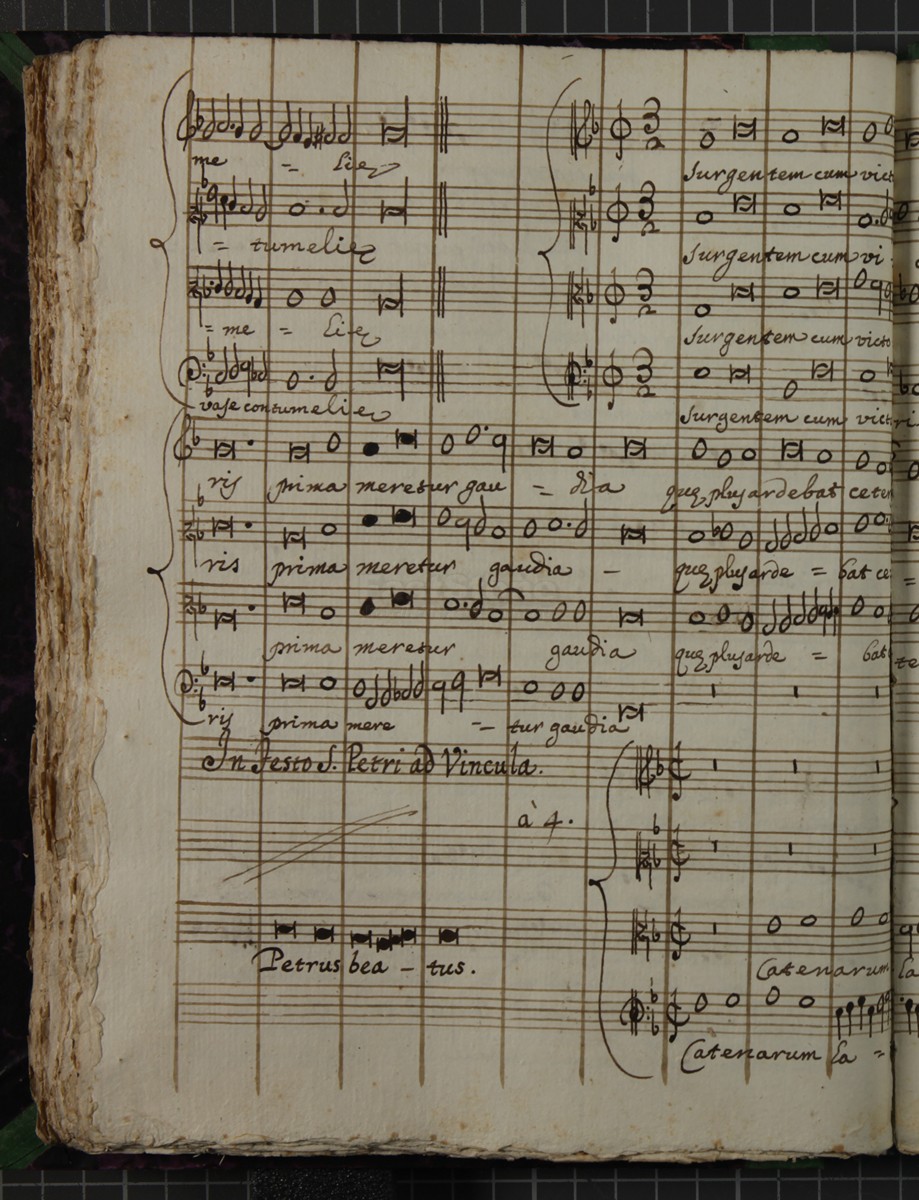 me = lie
Surgentem cum vict
= tumelie
Surgentem cum vi
= me = lie
Surgentem cum victo
vase contumelie
Surgentem cum vict
ris prima meretur gau = dia que plus ardebat ceter
ris prima meretur gaudia – que plus arde = bat ce
prima meretur gaudia que plus arde = bat
ris prima mere = tur gaudia
In Festo S. Petri ad Vincula.
à 4.
Petrus bea – tus.
Catenarum
Catenarum la =